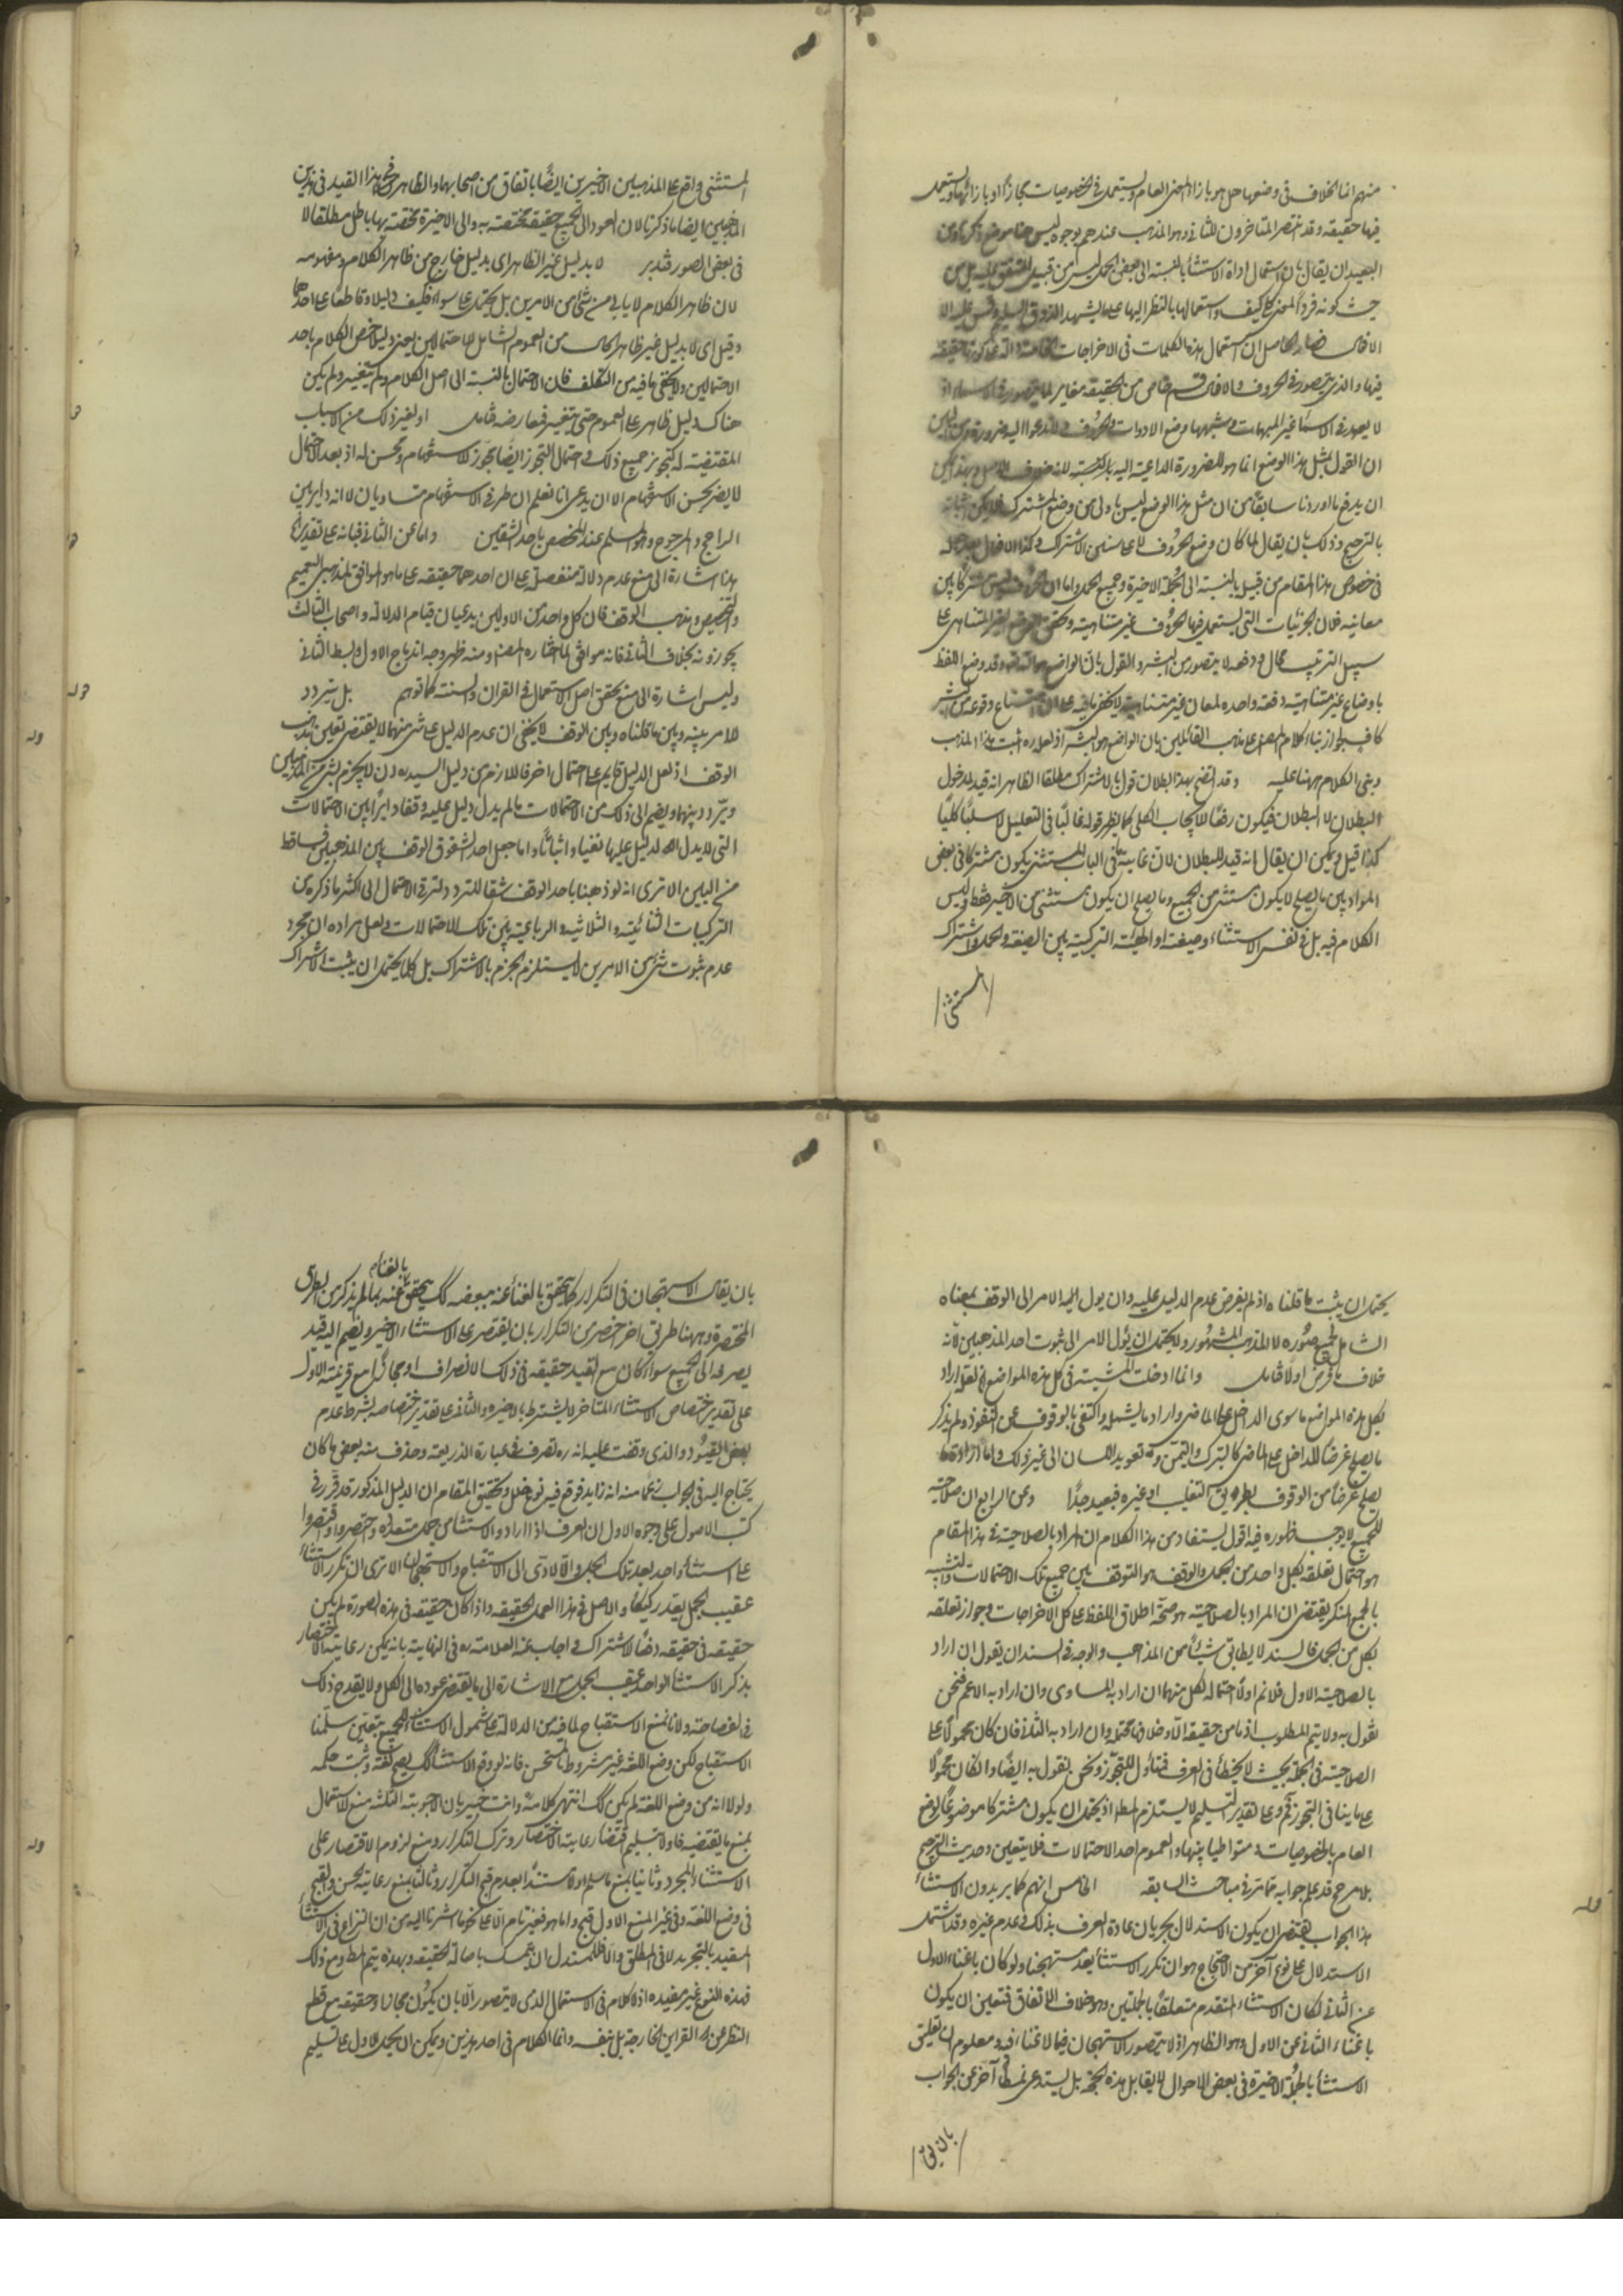 منهم انما الخلاف فى وضعها هل هو بازاء المعنى العام ويستعمل فى الخصوصيات مجازاً او بازائها ويستعمل
فيها حقيقة وقد انتصر المتاخرون للثانى وهو المذهب عندهم بوجوه ليس هنا موضع ذكرها ومن
البعيد ان يقال بان استعمال اداة الاستثنا بالنسبة الى بعض الجمل ليس من قبيل المتفق عليه بل من
حيث كونه فرداً لمعنى كلى كيف واستعمالها بالنظر اليها على ما يشهد الذوق السليم وقس عليه الا
الافعال فصار الحاصل ان استعمال هذه الكلمات فى الاخراجات
فيها والذى يتصور فى الحروف والافعال قسم خاص من الحقيقة مغاير لما يتصور فى الاسماء اذ
لا يعهد فى الاسما غير المبهمات وشبهها وضع الادوات والحروف ولا تدعوا اليه ضرورة ومن البين
ان القول بمثل هذا الوضع انما هو للضرورة الداعية اليه بالنسبة لانه خلاف الاصل وبهذا يمكن
ان يدفع ما اوردنا سابقاً من ان مثل هذا الوضع ليس باولى من وضع المشترك فلا يمكن اثباته
بالترجيح وذلك بان يقال لما كان وضع الحروف لا على سنن الاشتراك وكذا الافعال
فى خصوص هذا المقام من قبيل بالنسبة الى الجملة الاخيرة وجميع الجمل واما ان الحروف ليس مشتركا بين
معانيه فلان الجزئيات التى يستعمل فيها الحروف غير متناهية وتحقق الوضع الغير المتناهى على
سبيل الترتيب محال ودفعه لا يتصور من البشر والقول بان الواضع هو الله تعه وقد وضع اللفظ
باوضاع غير متناهية دفعة واحدة لمعان غير متناهية لا يخفى ما فيه على ان امتناع وقوعه من البشر
كاف لجواز بناء كلام المص على مذهب القائلين بان الواضع هو البشر اذ لعله ره اثبت هذا المذهب
وبنى الكلام ههنا عليه وقد اتضح بهذا بطلان قول بالاشتراك مطلقا الظاهر انه قيد لمدخول
البطلان لا البطلان فيكون رفعا للايجاب الكلى كما يظهر قوله غالباً فى التعليل لا سلباً كلياً
كذا قيل ويمكن ان يقال انه قيد للبطلان لان غاية ما فى الباب ان المستثنى يكون مشتركا فى بعض
المواد بين ما يصلح لا يكون مستثنى من الجميع وما يصلح ان يكون مستثنى من الاخيرة فقط وليس
الكلام فيه بل فى نفس الاستثناء وصيغته او الهيئة التركيبية بين الصيغة والجمل واشتراك
المستثنى
المستثنى واقع على المذهبين الاخيرين ايضاً باتفاق من اصحابهما والظاهر فى هذا القيد فى هذين
المذهبين ايضا ما ذكرنا لان العود الى الجميع حقيقة مختصة به والى الاخيرة مختصة بها باطل مطلقا لا
فى بعض الصور فتدبر لا بدليل غير الظاهر اى بدليل خارج من ظاهر الكلام ومفهومه
لان ظاهر الكلام لا يابى من شئ من الامرين بل يحتمل على سواء فكيف دليلا وقاطعا على احدهما
وقيل اى لا بدليل غير ظاهر الحال من العموم الشامل للاحتمالين يعنى دليلا خص الكلام باحد
الاحتمالين ولا يخفى ما فيه من التكلف فان الاحتمال بالنسبة الى اصل الكلام ولم يتغير ولم يكن
هناك دليل ظاهر على العموم حتى يتغير فمعارضه فتامل او لغير ذلك من الاسباب
المقتضية له لتجويز جميع ذلك واحتمال التجوز ايضا يجوز للاستفهام ويحسن له اذ بعد الاحتمال
لا يضر بحسن الاستفهام الا ان يدعى انا نعلم ان طرفى الاستفهام متساويان لا انه داير بين
الراجح والمرجوح وهو مسلم عند المخصص باحد الشقين واما عن الثانى فبانه على تقدير انها
هذا اشارة الى منع عدم دلالة منفصلة على ان احدهما حقيقة على ما هو الموافق لمذهبى التعميم
والتخصيص ومذهب الوقف فان كل واحد من الاولين يدعيان قيام الدلالة واصحاب الثالث
يجوزونه بخلاف الثانى فانه موافق لما اختاره المص ومنه ظهر وجه اندماج الاول وبسط الثانى
وليس اشارة الى منع تحقق اصل الاستعمال فى القران والسنة كما توهم بل يتردد
الامر بينه وبين ما قلناه وبين الوقف لا يخفى ان عدم الدليل على شئ منهما لا يقتضى تعيين مذهب
الوقف اذ لعل الدليل قايم على احتمال اخر فاللازم من دليل السيد ره ان لا يجزم بشئ من المذهبين
ويتردد بينهما ويضم الى ذلك من الاحتمالات ما لم يدل دليل عليه وقفا دايراً بين الاحتمالات
التى لا يدل له دليل عليها نفيا واثباتاً واما جعل احد الشقوق الوقف بين المذهبين فساقط
من البين الا ترى انه لو ذهبنا باحد الوقف شقا للتردد لترقى الاحتمال الى اكثر ما ذكره من
التركيبات الثنائية والثلاثية والرباعية بين تلك الاحتمالات ولعل مراده ان مجرد
عدم ثبوت شئ من الامرين لا يستلزم الجزم بالاشتراك بل كما يحتمل ان يثبت الاشتراك
يحتمل ان يثبت ما قلناه اذ لم يفرض عدم الدليل عليه وان يول اليه الامر الى الوقف بمعناه
الشامل لجميع صوره لا المذهب المشهور ولا يحتمل ان يئول الامر الى ثبوت احد المذهبين لانه
خلاف ما فرض اولا فتامل وانما ادخلت المشية فى كل هذه المواضع لعله اراد
بكل هذه المواضع ما سوى الداخل على الماضى واراد ما يشمله واكتفى بالوقوف عن النفوذ ولم يذكر
ما يصلح غرضا للداخل على الماضى كالتبرك والتيمن وتعويد اللسان الى غير ذلك واما ارادة ما
يصلح غرضا من الوقوف بطريق التغليب او غيره فبعيد جداً وعن الرابع ان صلاحية
للجميع لا يوجب ظهوره فيه اقول يستفاد من هذا الكلام ان المراد بالصلاحية فى هذا المقام
هو احتمال تعلقه بكل واحد من الجمل والوقف هو التوقف بين جميع تلك الاحتمالات والتشبيه
بالجمع المنكر يقتضى ان المراد بالصلاحية هو صحة اطلاق اللفظ على كل الاخراجات وجواز تعلقه
بكل من الجمل فالسند لا يطابق شيئاً من المذاهب والوجه فى السند ان يقول ان اراد
بالصلاحية الاول فلا نم اولا احتماله لكل منهما ان اراد به المساوى وان اراد به الاعم فنحن
نقول به ولا يتم المطلوب اذ ما من حقيقة الا وخلافها محتمل وان اراد به الثانى فان كان محمولا على
الصلاحية فى الجملة بحيث لا يخطأ فى العرف فتناول للتجوز ونحن نقول به ايضا وان كان محمولا
على ما ينافى التجوز فم وعلى تقدير التسليم لا يستلزم المط اذ يحتمل ان يكون مشتركا موضوعا لوضع
العام بالخصوصيات ومتواطيا بينها والعموم احد الاحتمالات فلا يتعين وحديث الترجيح
بلا مرجح قد علم جوابه مما مر فى مباحث السابقة الخامس انهم كما يريدون الاستثناء
هذا الجواب يقتضى ان يكون الاستدلال بجريان عادة العرف بذلك وعدم غيره وقد اشتمل
الاستدلال على نوع آخر من الاحتجاج هو ان تكرر الاستثنا يعد مستهجنا ولو كان باغناء الاول
عن الثانى لكان الاستثناء المتقدم متعلقاً بالجملتين وهو خلاف الاتفاق فتعين ان يكون
باغناء الثانى عن الاول وهو الظاهر اذ لا يتصور الاستهجان فيما لا غناء فيه ومعلوم ان تعليق
الاستثنا بالجملة الاخيرة فى بعض الاحوال لا يقابل هذه الحجة بل يستدعى نمطا آخر عن الجواب
بان يق
بان يقال الاستهجان فى التكرار كما يتحقق بالغناء عنه ببعضه كك يتحقق بالغناء عنه بما لم يذكر من الطرق
المختصرة وههنا طريق اخر اخصر من التكرار بان يقتصر على الاستثناء الاخير ويضم اليه قيد
يصرفه الى الجميع سواء كان مع القيد حقيقة فى ذلك الانصراف او مجازا مع قرينته الاول
على تقدير اختصاص الاستثناء المتاخر لا بشرط بالاخيرة والثانى على تقدير اختصاصه بشرط عدم
بعض القيود والذى وقفت عليه انه ره تصرف فى عبارة الذريعة وحذف منه بعض ما كان
يحتاج اليه فى الجواب زعما منه انه زايد فوقع فيه نوع خلل وتحقيق المقام ان الدليل المذكور قد قرر فى
كتب الاصول على وجوه الاول ان العرف اذا ارادوا الاستثنا من جمل متعددة اختصروا واقتصروا
على استثناء واحد بعد تلك الجمل والا لادى الى الاستقباح والاستهجان الا ترى ان تكرر الاستثناء
عقيب الجمل يعد ركيكاً والاصل فى هذا العمل الحقيقة واذا كان حقيقة فى هذه الصورة لم يكن
حقيقة فى حقيقة دفعا للاشتراك واجاب عنه العلامة ره فى النهاية بانه يمكن رعاية الاختصار
بذكر الاستثنا الواحد عقيب الجمل مع الاشارة الى ما يقتضى عوده الى الكل ولا يقدح ذلك
فى الفصاحة ولانا نمنع الاستقباح لما فيه من الدلالة على شمول الاستثناء للجميع بتعيين سلمنا
الاستقباح لكن وضع اللغة غير مشروط بالمستحسن فانه لو وقع الاستثنا كك يصح لغة وثبت حكمه
ولولا انه من وضع اللغة لم يكن كك انتهى كلامه وانت خبير بان الاجوبة الثلثة منع للاستعمال
بمنع ما يقتضيه اولا بتسليم اقتضاء رعاية الاختصار وترك التكرار ومنع لزوم الاقتصار على
الاستثناء المجرد وثانيا بمنع ما سلم اولا مستنداً بعدم قبح التكرار وثالثا بمنع رعاية الحسن والقبح
فى وضع اللغة وفى غير المنع الاول قبح واما هو فغير تام الا على نحو ما اشرنا اليه من ان النزاع فى الاستثناء
المقيد بالتجريد لا فى المطلق والا فللمستدل ان يتمسك باصالة الحقيقة وبهذه يتم المط ومع ذلك
فهذه النوع غير مفيدة اذ لا كلام فى الاستعمال الذى لا يتصور الا بان يكون مجازا وحقيقة مع قطع
النظر عن القراين الخارجة بل نفيه وانما الكلام فى احد هذين ويمكن ان يحمل الاول على تسليم